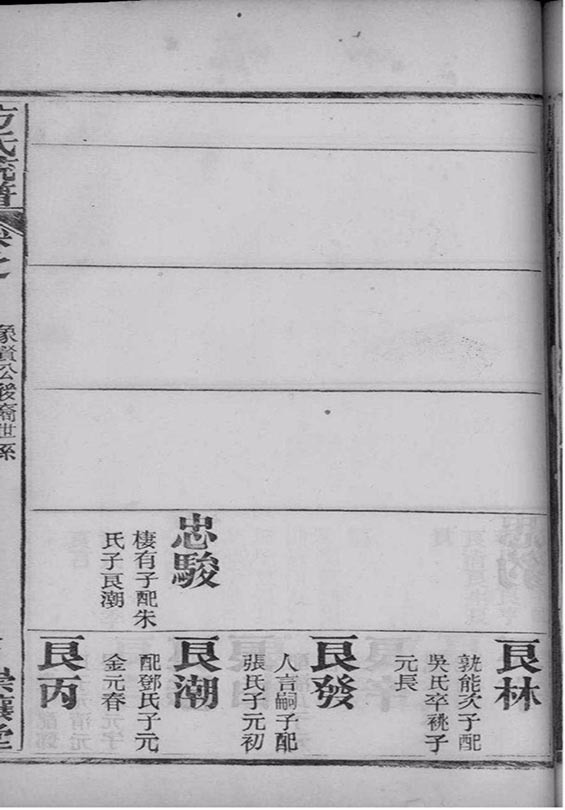 艮林
兟能次子配
吳氏卒祧子
元長
艮發
人吉嗣子配
張氏子元初
忠駿
棲有子配朱
氏子艮潮
艮潮
配鄧氏子元
金元春
艮丙
方氏宗譜
卷之
象賢公後裔世系
堂